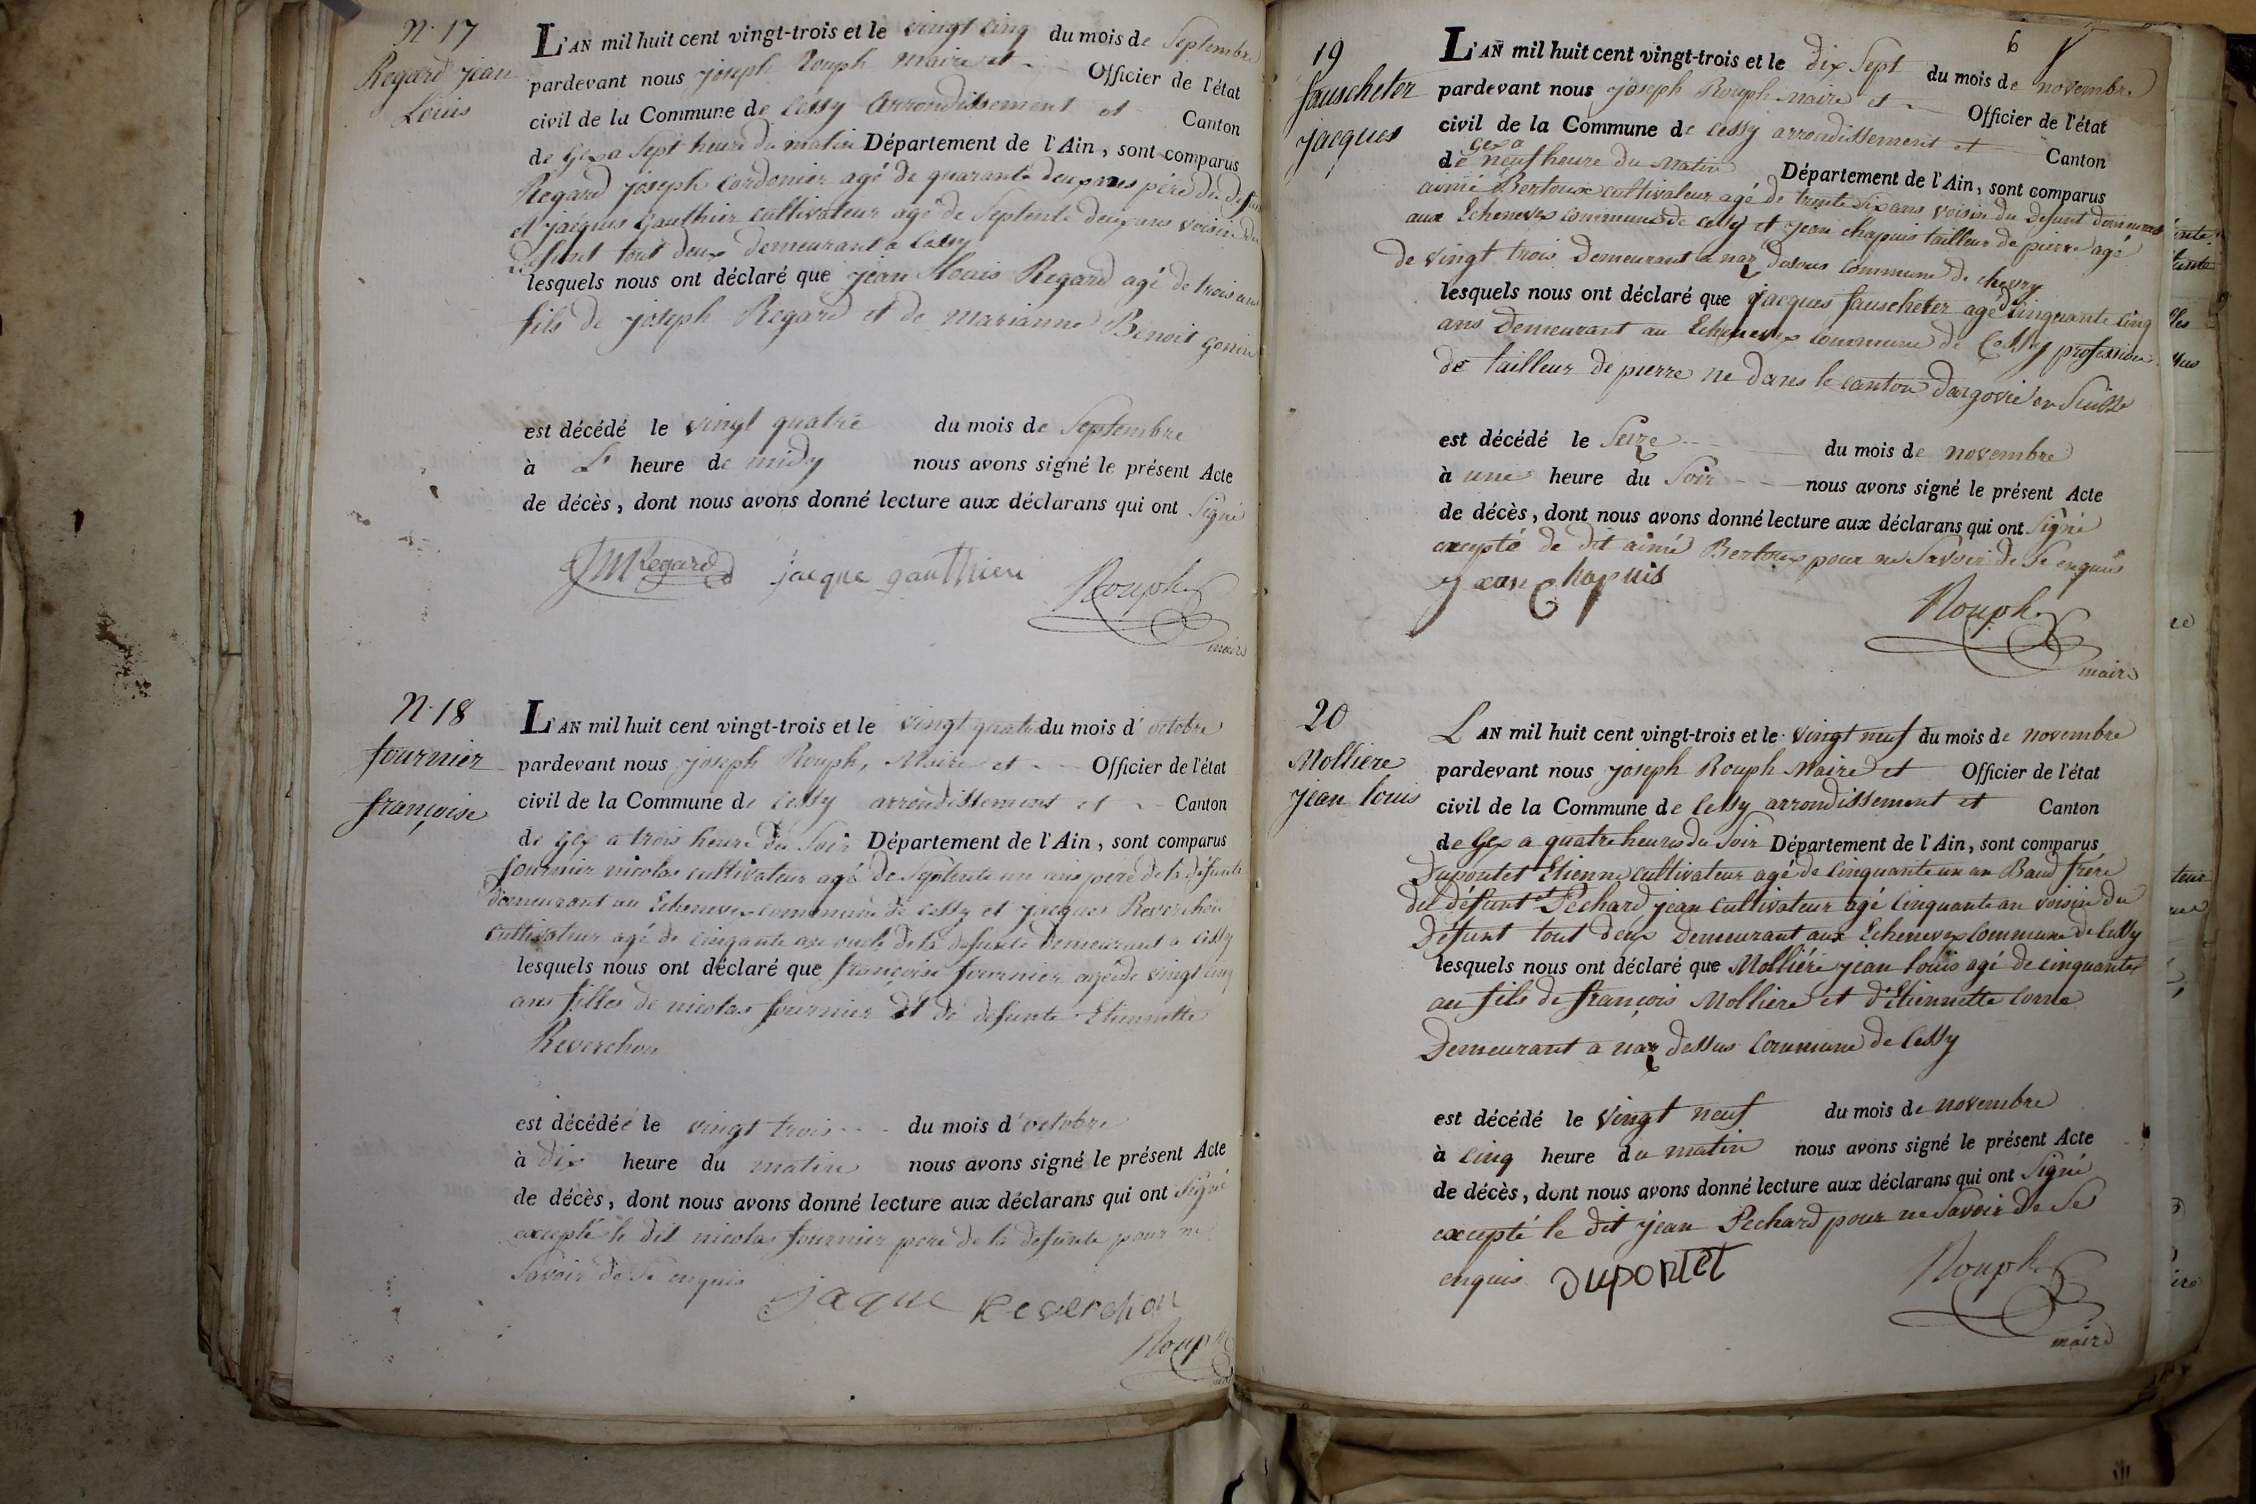 N. 17
Regard jean
Louis
L'AN mil huit cent vingt-trois et le vingt cinq du mois de Septembre
pardevant nous joseph Rouph Maire et Officier de l'état
civil de la Commune de Cessy Arrondissement et Canton
de Gex a Sept heure du matin Département de l'Ain, sont comparus
Regard joseph Cordonier agé de quarante deux ans père du defunt
et jacques Gauthier cultivateur agé de Septente deux ans voisin du
defunt tout deux demeurant a Cessy
lesquels nous ont déclaré que jean Louis Regard agé de trois ans
fils de joseph Regard et de marianne Benoit Gonin
est décédé le vingt quatre du mois de Septembre
à L' heure de midy nous avons signé le présent Acte
de décès, dont nous avons donné lecture aux déclarans qui ont Signé
JM Regard jacque gauthier Rouph
maire
N. 18
fournier
françoise
L'AN mil huit cent vingt-trois et le vingt quatre du mois d'octobre
pardevant nous joseph Rouph, Maire et Officier de l'état
civil de la Commune de Cessy arrondissement et Canton
de Gex a trois heure du Soir Département de l'Ain, sont comparus
fournier nicolas cultivateur agé de Septente un ans père de la défunte
demeurant au Echenevex commune de Cessy et jacques Reverchon
cultivateur agé de cinqante ans oncle de la defunte demeurant a Cessy
lesquels nous ont déclaré que françoise fournier agée de vingt cinq
ans filles de nicolas fournier et de defunte Etiennette
Reverchon
est décédée le vingt trois du mois d'octobre
à dix heure du matin nous avons signé le présent Acte
de décès, dont nous avons donné lecture aux déclarans qui ont Signé
excepté le dit nicolas fournier pere de la defunte pour ne
Savoir de Se enquis
jaque Reverchon
Rouph
6
19
fauscheter
jacques
L'AN mil huit cent vingt-trois et le dix Sept du mois de novembre
pardevant nous joseph Rouph Maire et Officier de l'état
civil de la Commune de Cessy arrondissement et Canton
Gex a
de neuf heure du Matin Département de l'Ain, sont comparus
aimé Bertoux cultivateur agé de trente Six ans voisin du defunt demeurant
aux Echenevex commune de Cessy et jean chapuis tailleur de pierre agé
de vingt trois Demeurant a naz desous Commune de chevry
lesquels nous ont déclaré que jacques fauscheter agé de Cinquante Cinq
ans Demeurant au Echenevex commune de Cessy profession
de tailleur de pierre ne dans le canton dargovie en Suisse
est décédé le Seize du mois de novembre
à une heure du Soir nous avons signé le présent Acte
de décès, dont nous avons donné lecture aux déclarans qui ont Signé
excepté de dit aimé Bertoux pour ne Savoir de Se enquis
jean Chapuis
Rouph
maire
20
Molliere
jean louis
L'AN mil huit cent vingt-trois et le vingt neuf du mois de novembre
pardevant nous joseph Rouph Maire et Officier de l'état
civil de la Commune de Cessy arrondissement et Canton
de Gex a quatre heures du Soir Département de l'Ain, sont comparus
Dupoutet Etienne Cultivateur agé de Cinquante un an Baud frère
du défunt et Pechard jean Cultivateur agé Cinquante an voisin du
Défunt tout deux Demeurant aux Echenevex Commune de Cessy
lesquels nous ont déclaré que Mollière jean louis agé de cinquante
an fils de françois Molliere et d'Etiennette Corne
Demeurant a naz dessus Commune de Cessy
est décédé le vingt neuf du mois de novembre
à Cinq heure du matin nous avons signé le présent Acte
de décès, dont nous avons donné lecture aux déclarans qui ont Signé
excepté le dit jean Pechard pour ne Savoir de Se
enquis Duportet
Rouph
maire